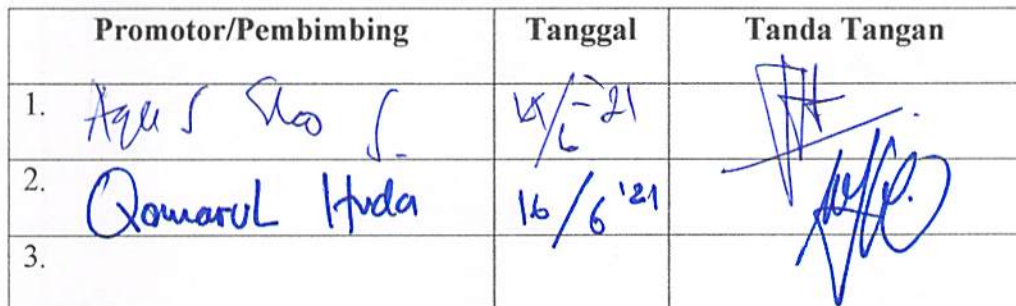 Promotor/Pembimbing Tanggal Tanda Tangan
1. Agus
2. Qomarul Huda 16/6 '21
3.